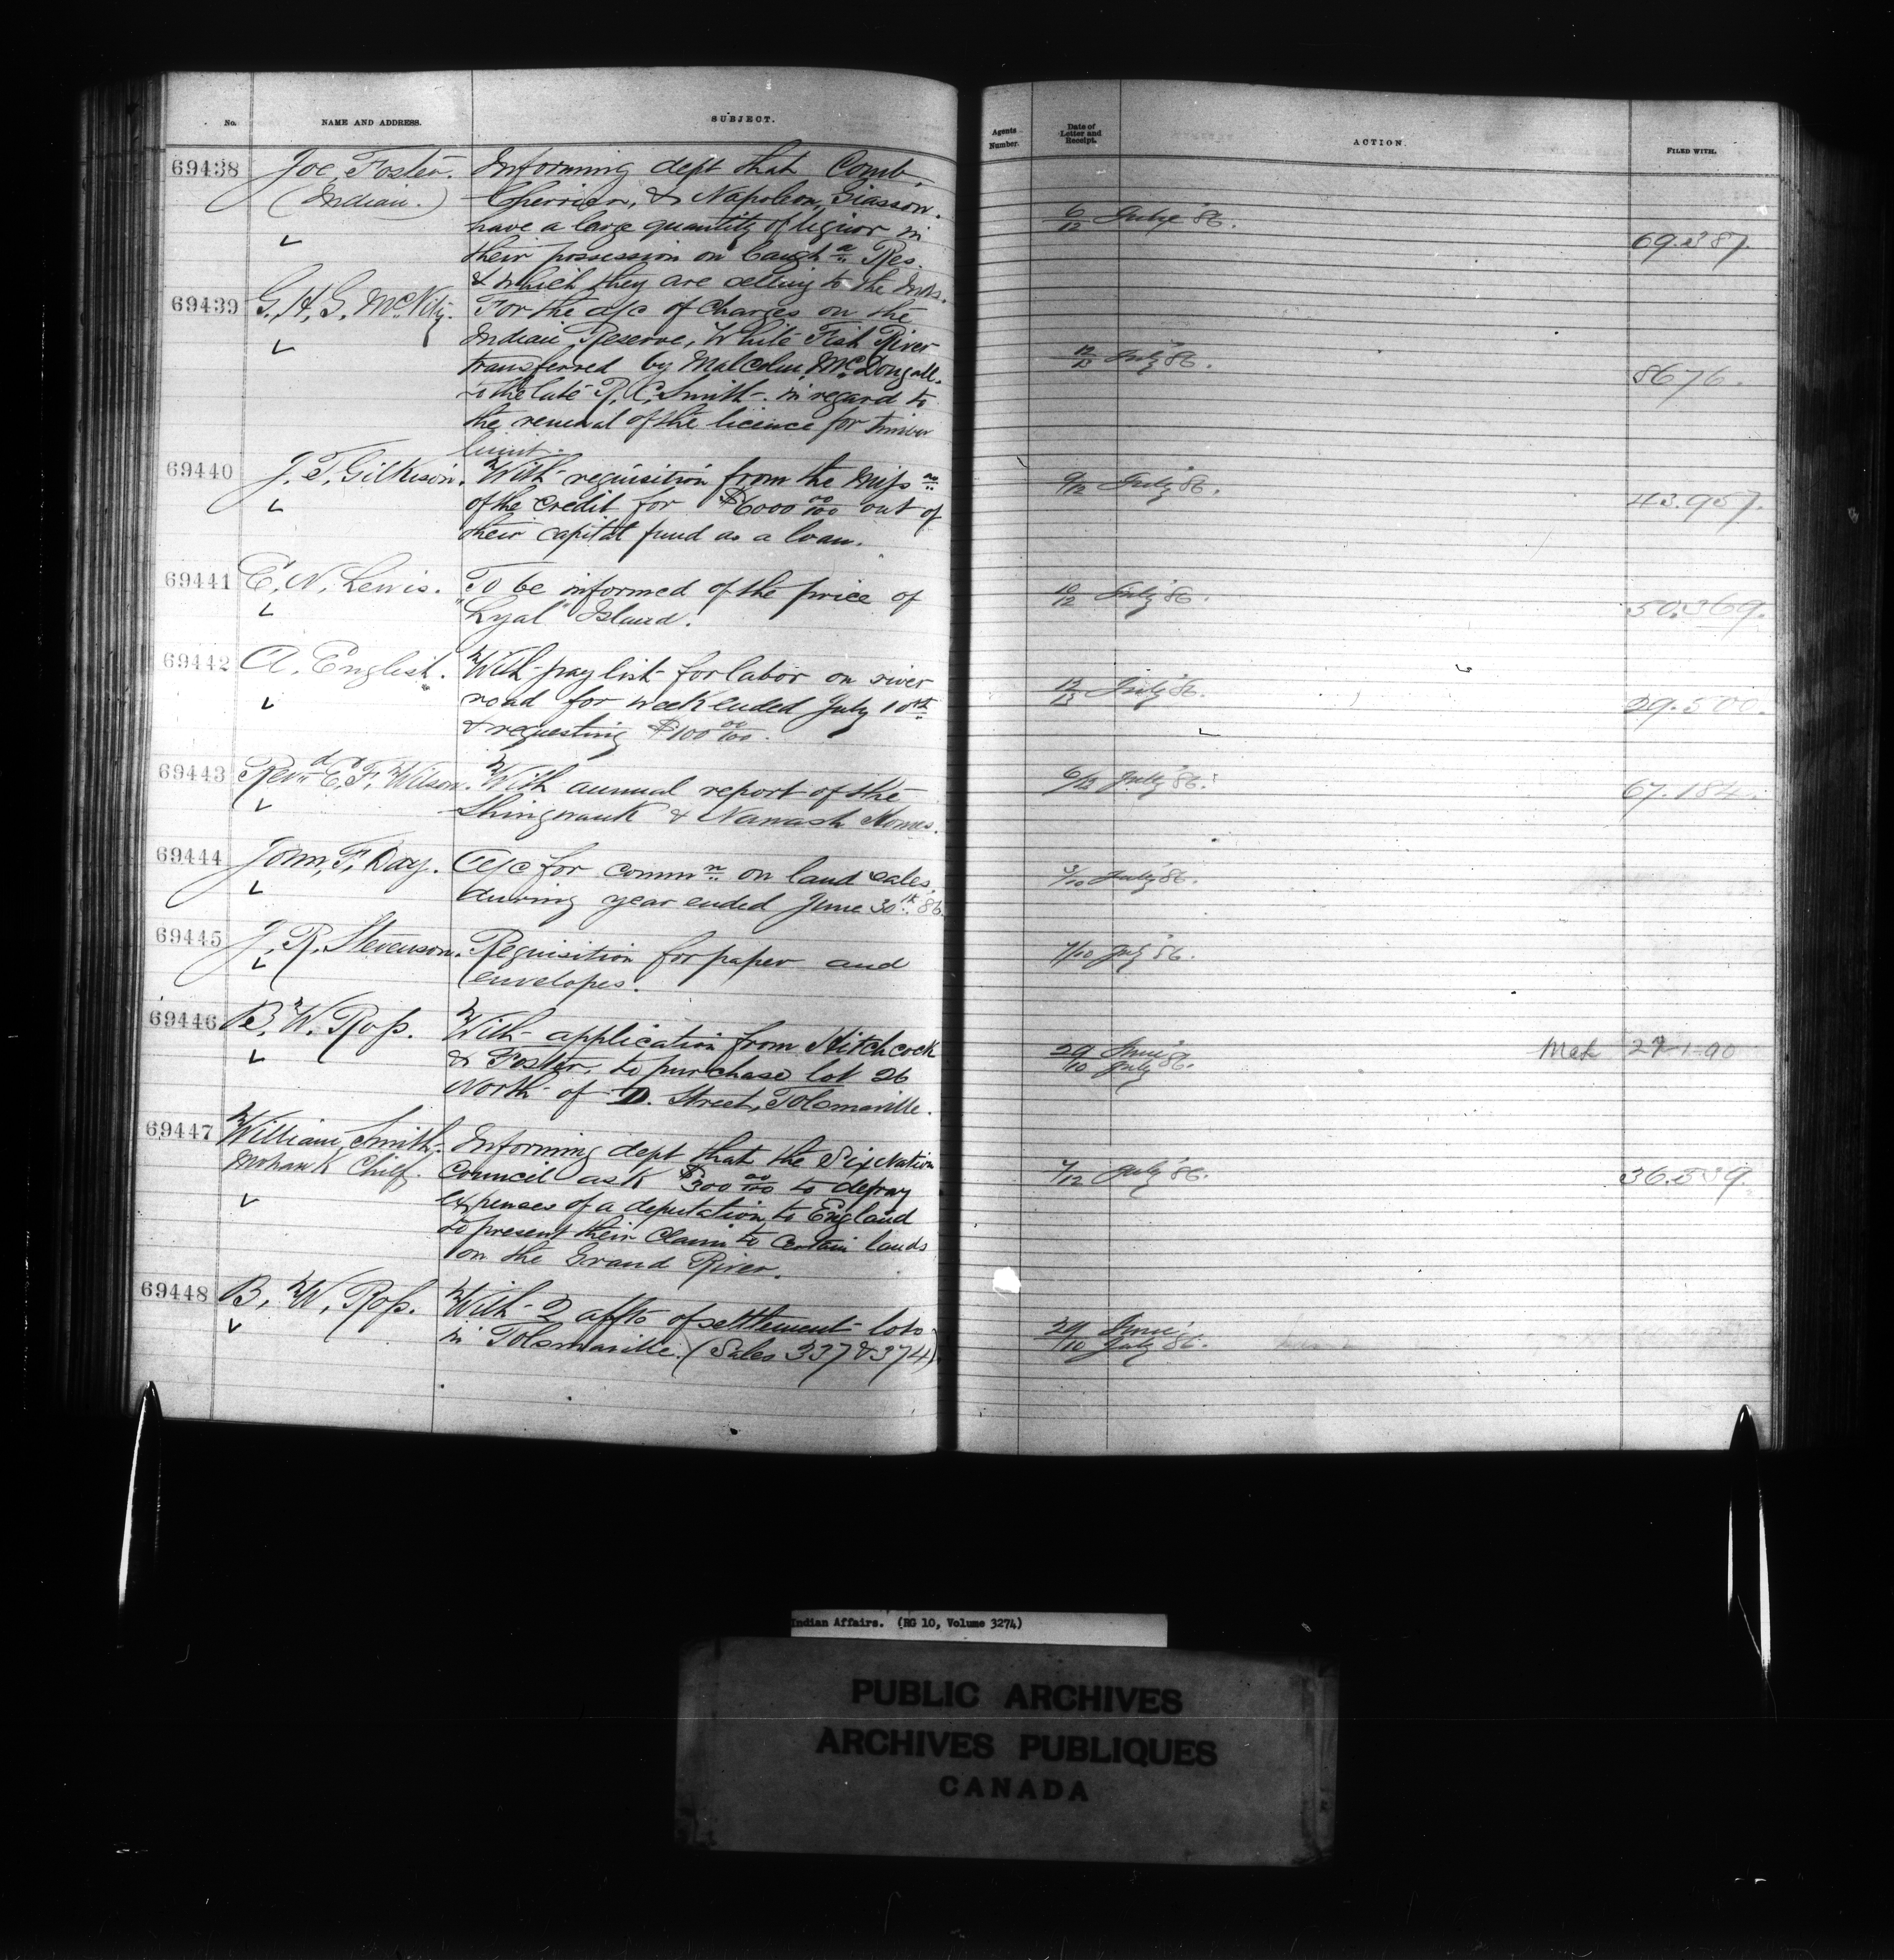 No. NAME AND ADDRESS. SUBJECT.
69438 Joe, Foster. Informing dept that Comb,
(Indian.) Cherrier, & Napoleon, Giasson.
have a large quantity of liquor in
their possession on Caugh a Res.
& which they are selling to the Inds.
69439 G. H. G. McVity. For the a/c of charges on the
Indian Reserve, White Fish River
transferred by Malcolm, McDougall.
to the late R. C. Smith - in regard to
the renewal of the licence for timber
limit.
69440 J. T. Gilkison. With requisition from the Miss as
of the Credit for $6000 00/100 out of
their capital fund as a loan.
69441 E. N. Lewis. To be informed of the price of
"Lyal" Island.
69442 A. English. With pay list for labor on river
road for week ended July 10th
& requesting $100 00/100.
69443 Revd. E. F. Wilson. With annual report of the
Shingwauk & Wawanosh Homes.
69444 John, F. Day. A/c for commn on land sales
during year ended June 30th 86.
69445 J. R. Stevenson. Requisition for paper and
envelopes.
69446 B. W. Ross. With application from Hitchcock
& Foster, to purchase lot 26
North of D. Street, Tolsmaville.
69447 William, Smith, Informing dept that the Six Nation
Mohawk Chief. Council ask $300 00/100 to defray
expenses of a deputation to England
to present their Claim to certain lands
on the Grand River.
69448 B. W. Ross. With 2 affts of settlement - lots
in Tolsmaville. (Sales 337 & 374)
Agents Number. Date of Letter and Receipt. ACTION. FILED WITH.
6/12 July 86. 69.387.
12/13 July 86. 8676.
9/12 July 86. 43.957.
10/12 July 86. 50.369.
12/13 July 86. 29.500.
6/12 July 86. 67.184.
3/10 July 86.
7/10 July 86.
29 June
/10 July 86. 27-1-90
7/12 July 86. 36.539.
29 June
/10 July 86.
Indian Affairs. (RG 10, Volume 3274)
PUBLIC ARCHIVES
ARCHIVES PUBLIQUES
CANADA